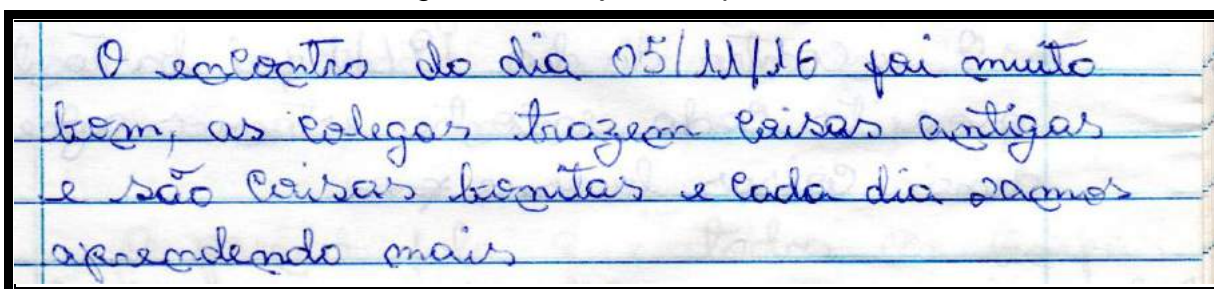 O encontro do dia 05/11/16 foi muito
bom, as colegas trazem coisas antigas
e são coisas bonitas e cada dia vamos
aprendendo mais